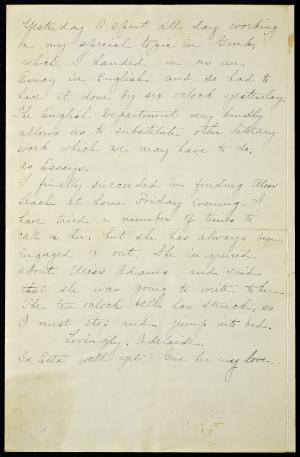 Yesterday I spent all day working
on my special topic in Greek,
which I handed in as an
Essay in English, and so had to
have it done by six oclock yesterday.
The English Department very kindly
allows us to substitute other literary
work which we may have to do,
as Essays.
I finally succeeded in finding Miss
Leach at home Friday evening. I
have tried a number of times to
call on her, but she has always been
engaged or out. She inquired
about Miss Adams, and said
that she was going to write to her.
The ten oclock bell has struck, so
I must stop and jump into bed.
Lovingly, Adelaide.
Is Etta well yet? Give her my love.